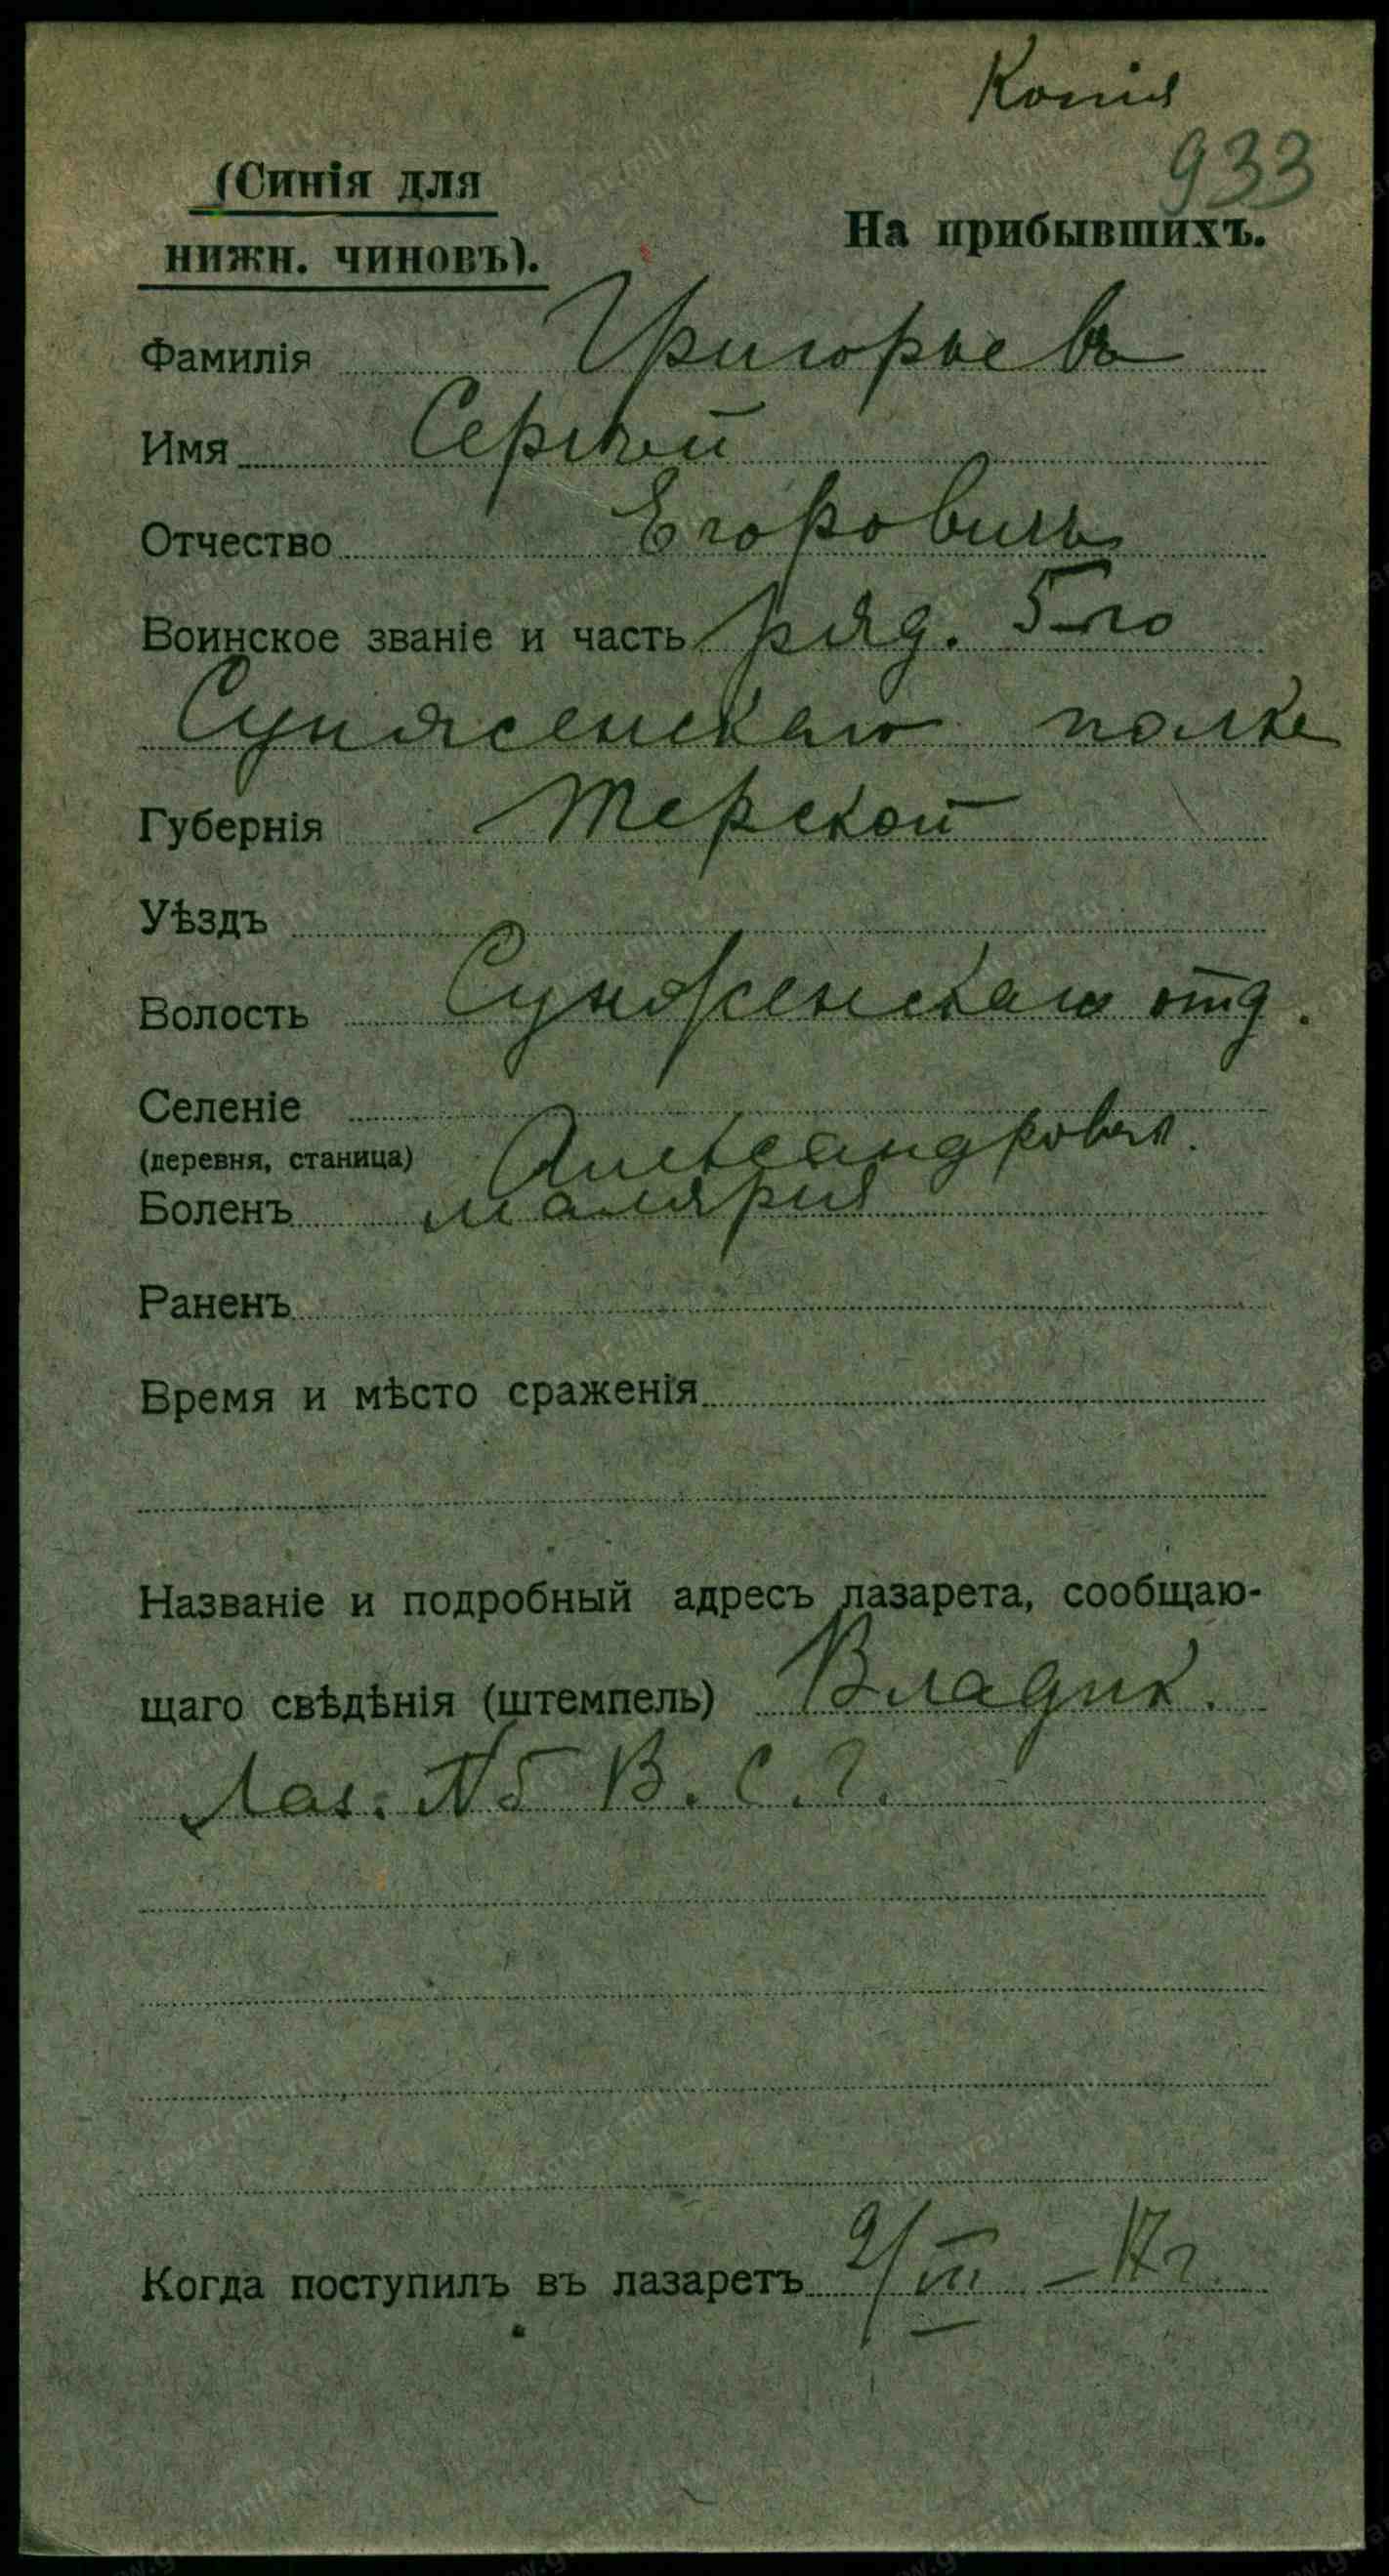 Копія
933
(Синія для
нижн. чиновъ).
На прибывшихъ.
Фамилія Григорьевъ
Имя Сергѣй
Отчество Егоровичъ
Воинское званіе и часть ряд. 5-го
Сунженскаго полка
Губернія Терской
Уѣздъ
Волость Сунженскаго отд.
Селеніе
(деревня, станица) Александровск.
Боленъ малярия
Раненъ
Время и мѣсто сраженія
Названіе и подробный адресъ лазарета, сообщаю-
щаго свѣдѣнія (штемпель) Владик.
Лаз. №5 В. С. Г.
Когда поступилъ въ лазаретъ 9/III – 17 г.